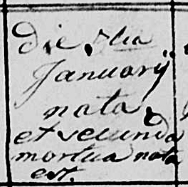 die 7ma
Januarÿ
nata
et secunda
mortua nata
est.